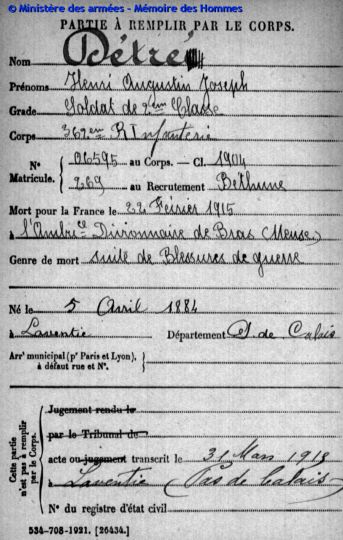 © Ministère des armées - Mémoire des Hommes
PARTIE À REMPLIR PAR LE CORPS.
Nom Détré
Prénoms Henri Augustin Joseph
Grade Soldat de 2ème Classe
Corps 362em RInfanterie
N° Matricule. { 06595 au Corps. — Cl. 1904
269 au Recrutement Béthune
Mort pour la France le 22 Février 1915
à l'Ambce Divisionnaire de Bras (Meuse)
Genre de mort suite de Blessures de guerre
Né le 5 Avril 1884
à Laventie Département P. de Calais
Arrt municipal (pr Paris et Lyon), à défaut rue et N°.
Cette partie n'est pas à remplir par le Corps.
Jugement rendu le
par le Tribunal de
acte ou jugement transcrit le 31 Mars 1918
à Laventie (Pas de Calais)
N° du registre d'état civil
534-708-1921. [26434.]